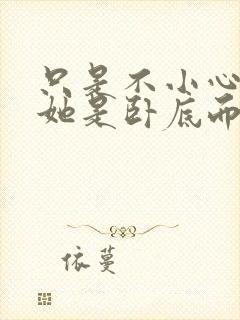 只是不小心
她是卧底而
依蔓